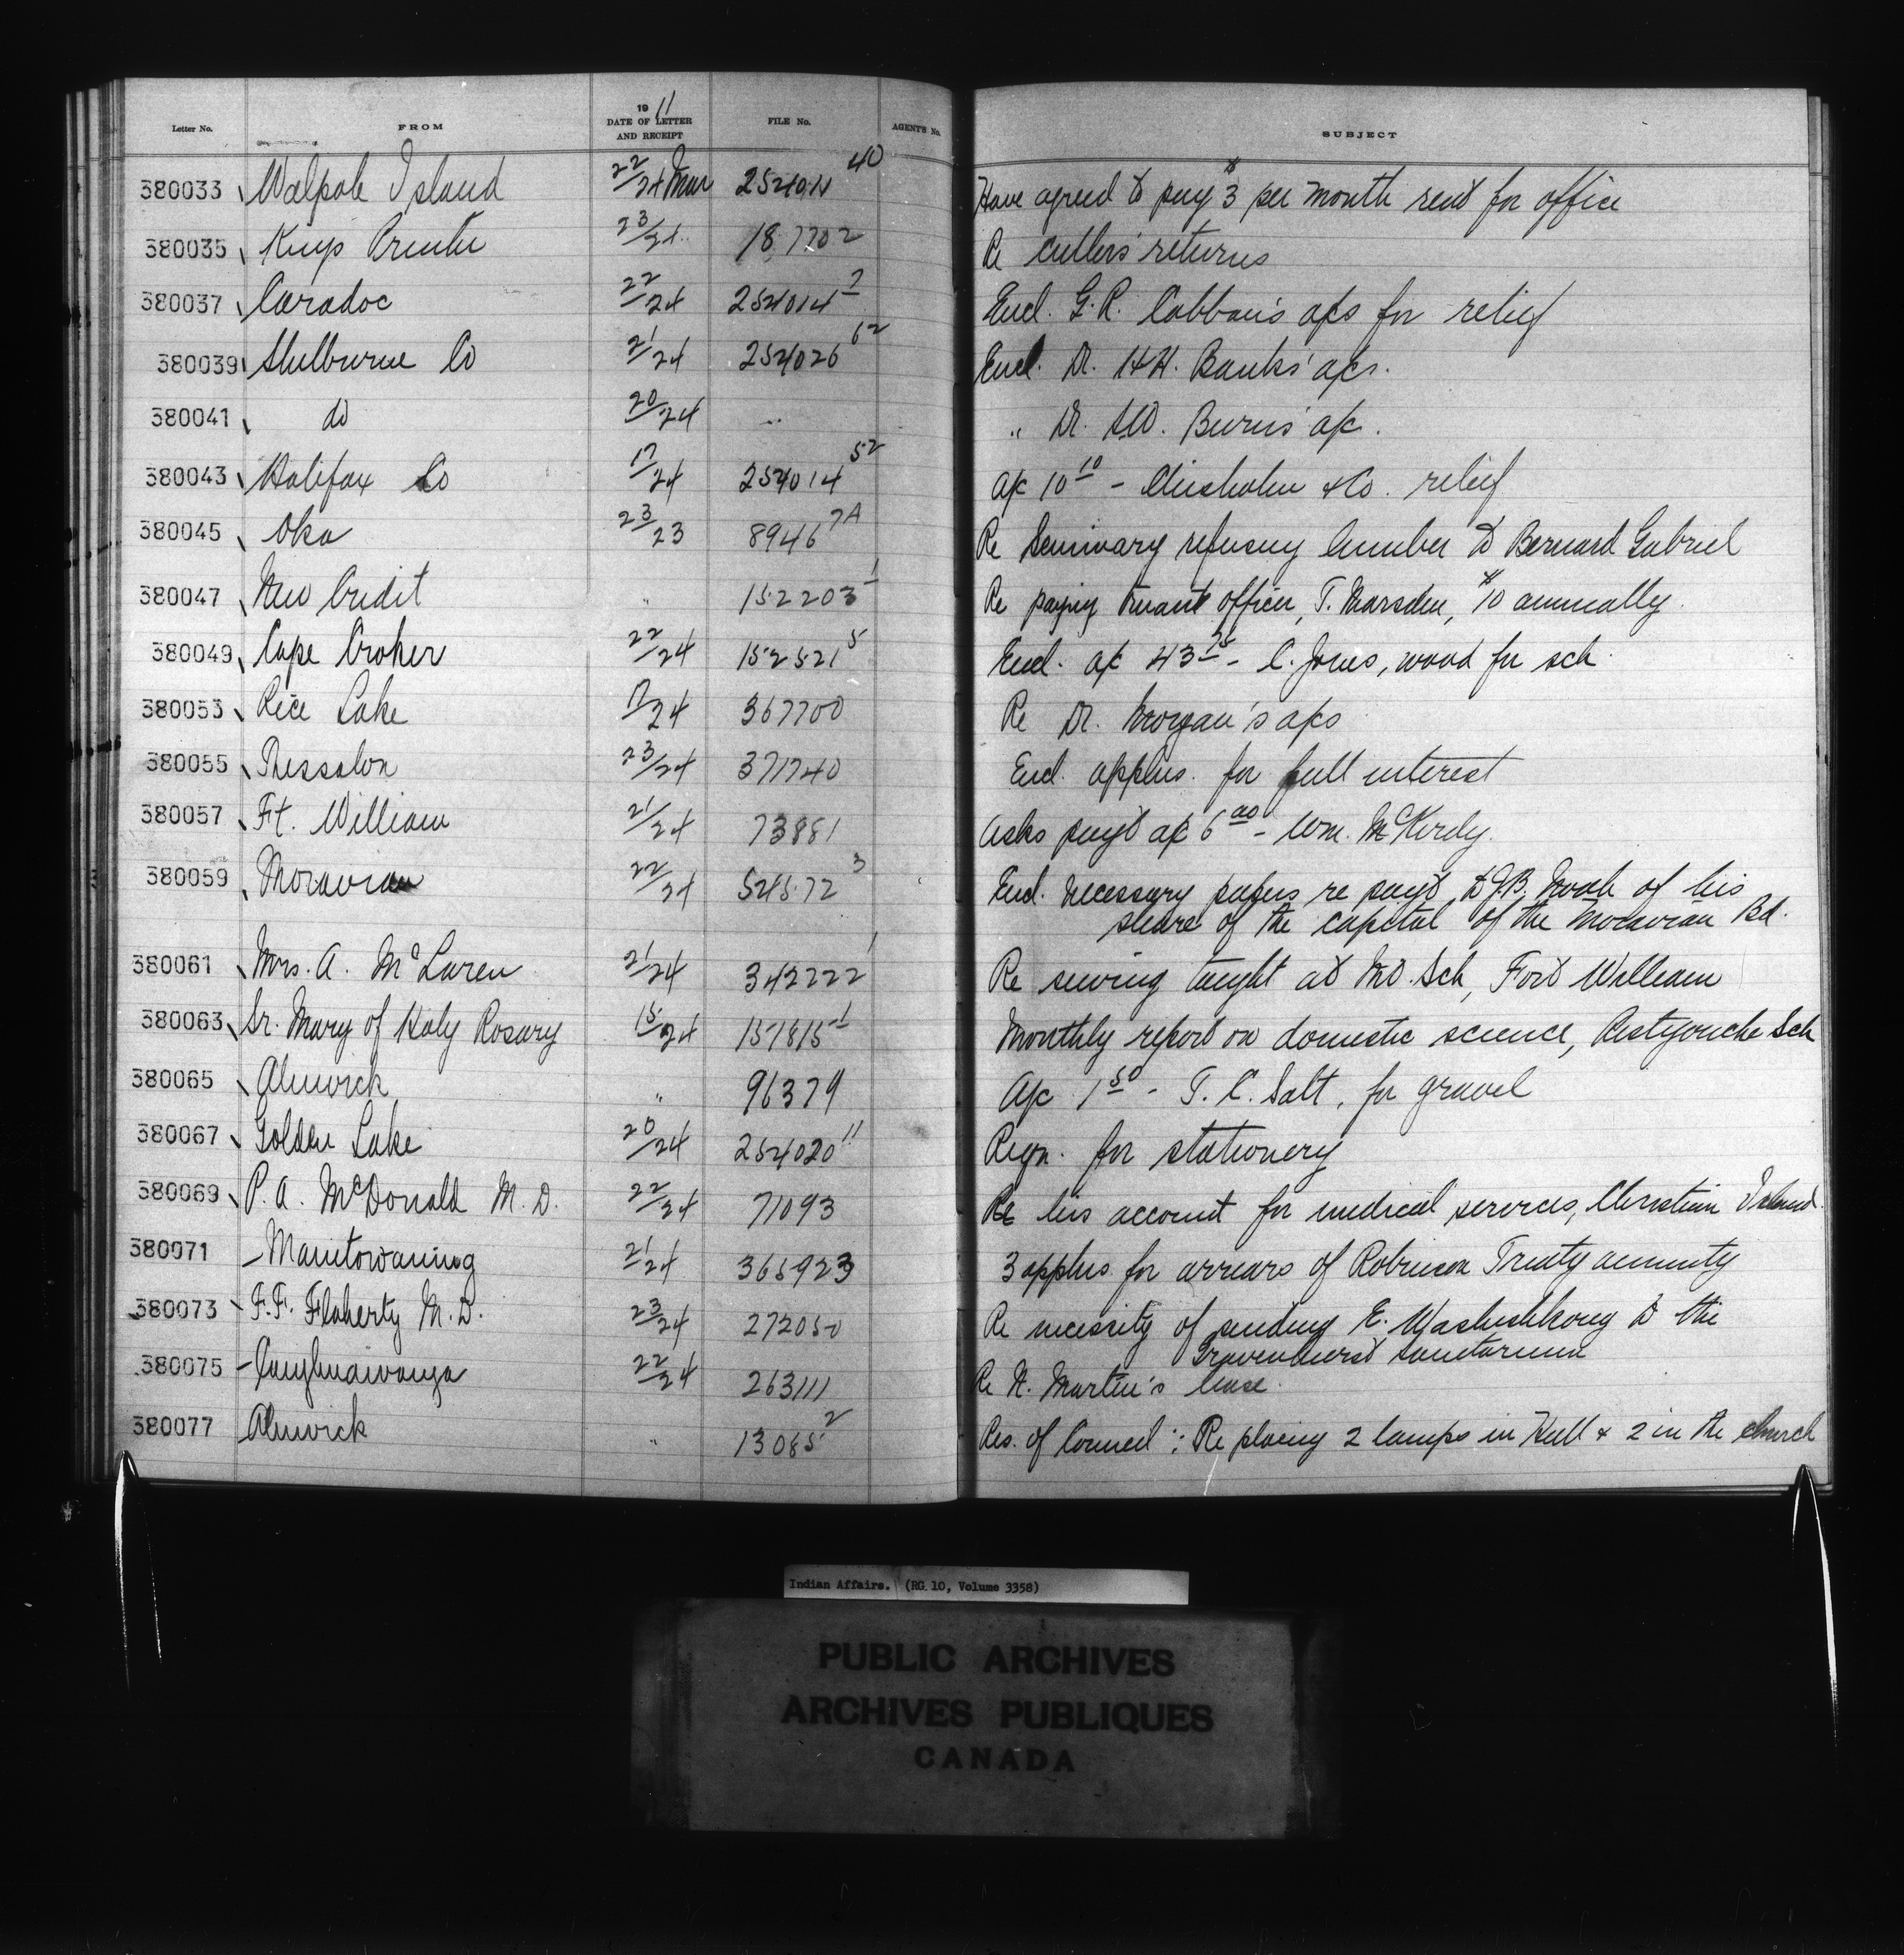 Letter No. FROM 1911 DATE OF LETTER AND RECEIPT FILE No. AGENT'S No. SUBJECT
380033 Walpole Island 22/24 Mar 254014 40 Have agreed to pay $3 per month rent for office
380035 Kings Printer 23/24 187702 Re cullers' returns
380037 Caradoc 22/24 254014 7 Encl. G.R. a/cs for relief
380039 Shelburne Co 21/24 254026 62 Encl. Dr. H.H. Banks' a/cs.
380041 do 20/24 " " Dr. Burns' a/c.
380043 Halifax Co 17/24 254014 52 a/c 10 10 - Chisholm & Co. relief
380045 Oka 23/23 8946 7A Re Seminary refusing lumber to Bernard Gabriel
380047 New Credit " 152203 1 Re paying truant officer, T. Marsden, $10 annually.
380049 Cape Croker 22/24 152521 5 Encl. a/c 43 75 - C. Jones, wood for sch.
380053 Rice Lake 17/24 367700 Re Dr. Morgan's a/cs
380055 Thessalon 23/24 371740 Encl. applns. for full interest
380057 Ft. William 21/24 73881 Asks payt a/c 6 00 - Wm. McKirdy.
380059 Moravian 22/24 54572 3 Encl. necessary papers re payt to J.B. Noah of his
share of the capital of the Moravian Bd.
380061 Mrs. A. McLaren 21/24 342222 1 Re sewing taught at Md. Sch, Fort William
380063 Sr. Mary of Holy Rosary 15/24 157815 1 Monthly report on domestic science, Restigouche Sch
380065 Alnwick " 96379 A/c 1 50 - T. C. Salt, for gravel
380067 Golden Lake 20/24 254020 11 Reqn. for stationery
380069 P.A. McDonald M.D. 22/24 71093 Re his account for medical services, Christian Island.
380071 Manitowaning 21/24 365923 3 applns. for arrears of Robinson Treaty annuity
380073 F.F. Flaherty M.D. 23/24 272050 Re necessity of sending E. Washushkong to the
Gravenhurst sanitarium
380075 Caughnawaga 22/24 263111 Re N. Martin's lease.
380077 Alnwick " 13085 2 Res. of Council: Re placing 2 lamps in Hall & 2 in the church
Indian Affairs. (RG 10, Volume 3358)
PUBLIC ARCHIVES
ARCHIVES PUBLIQUES
CANADA